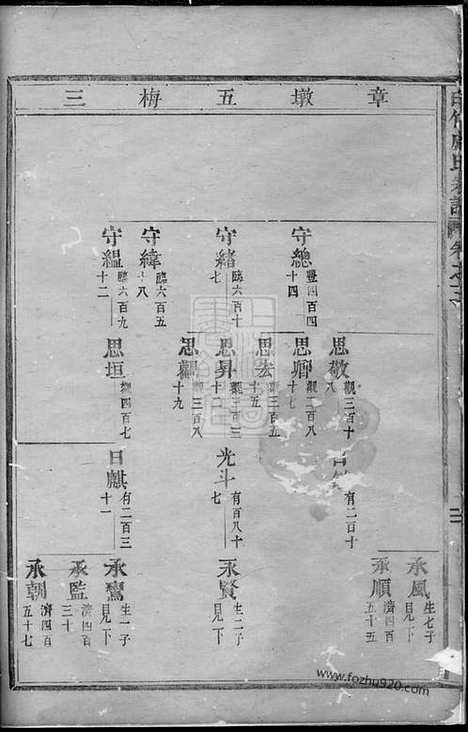 章墩五梅三
守總
豐四百四
十四
守緒
臨六百十
守緯
臨六百五
十八
守緼
臨六百九
十二
思敬
觀三百十
八
思卿
十七
思宏
十五
思昇
十二
思觀
觀三百八
十九
思垣
觀四百七
有二百十
光斗
有百八十
七
日麒
有二百三
十一
承風
生七子
見下
承順
濟四百
五十五
承賢
生二子
見下
承鸞
生一子
見下
承監
濟四百
三十
承朝
濟四百
五十七
www.fozhu920.com